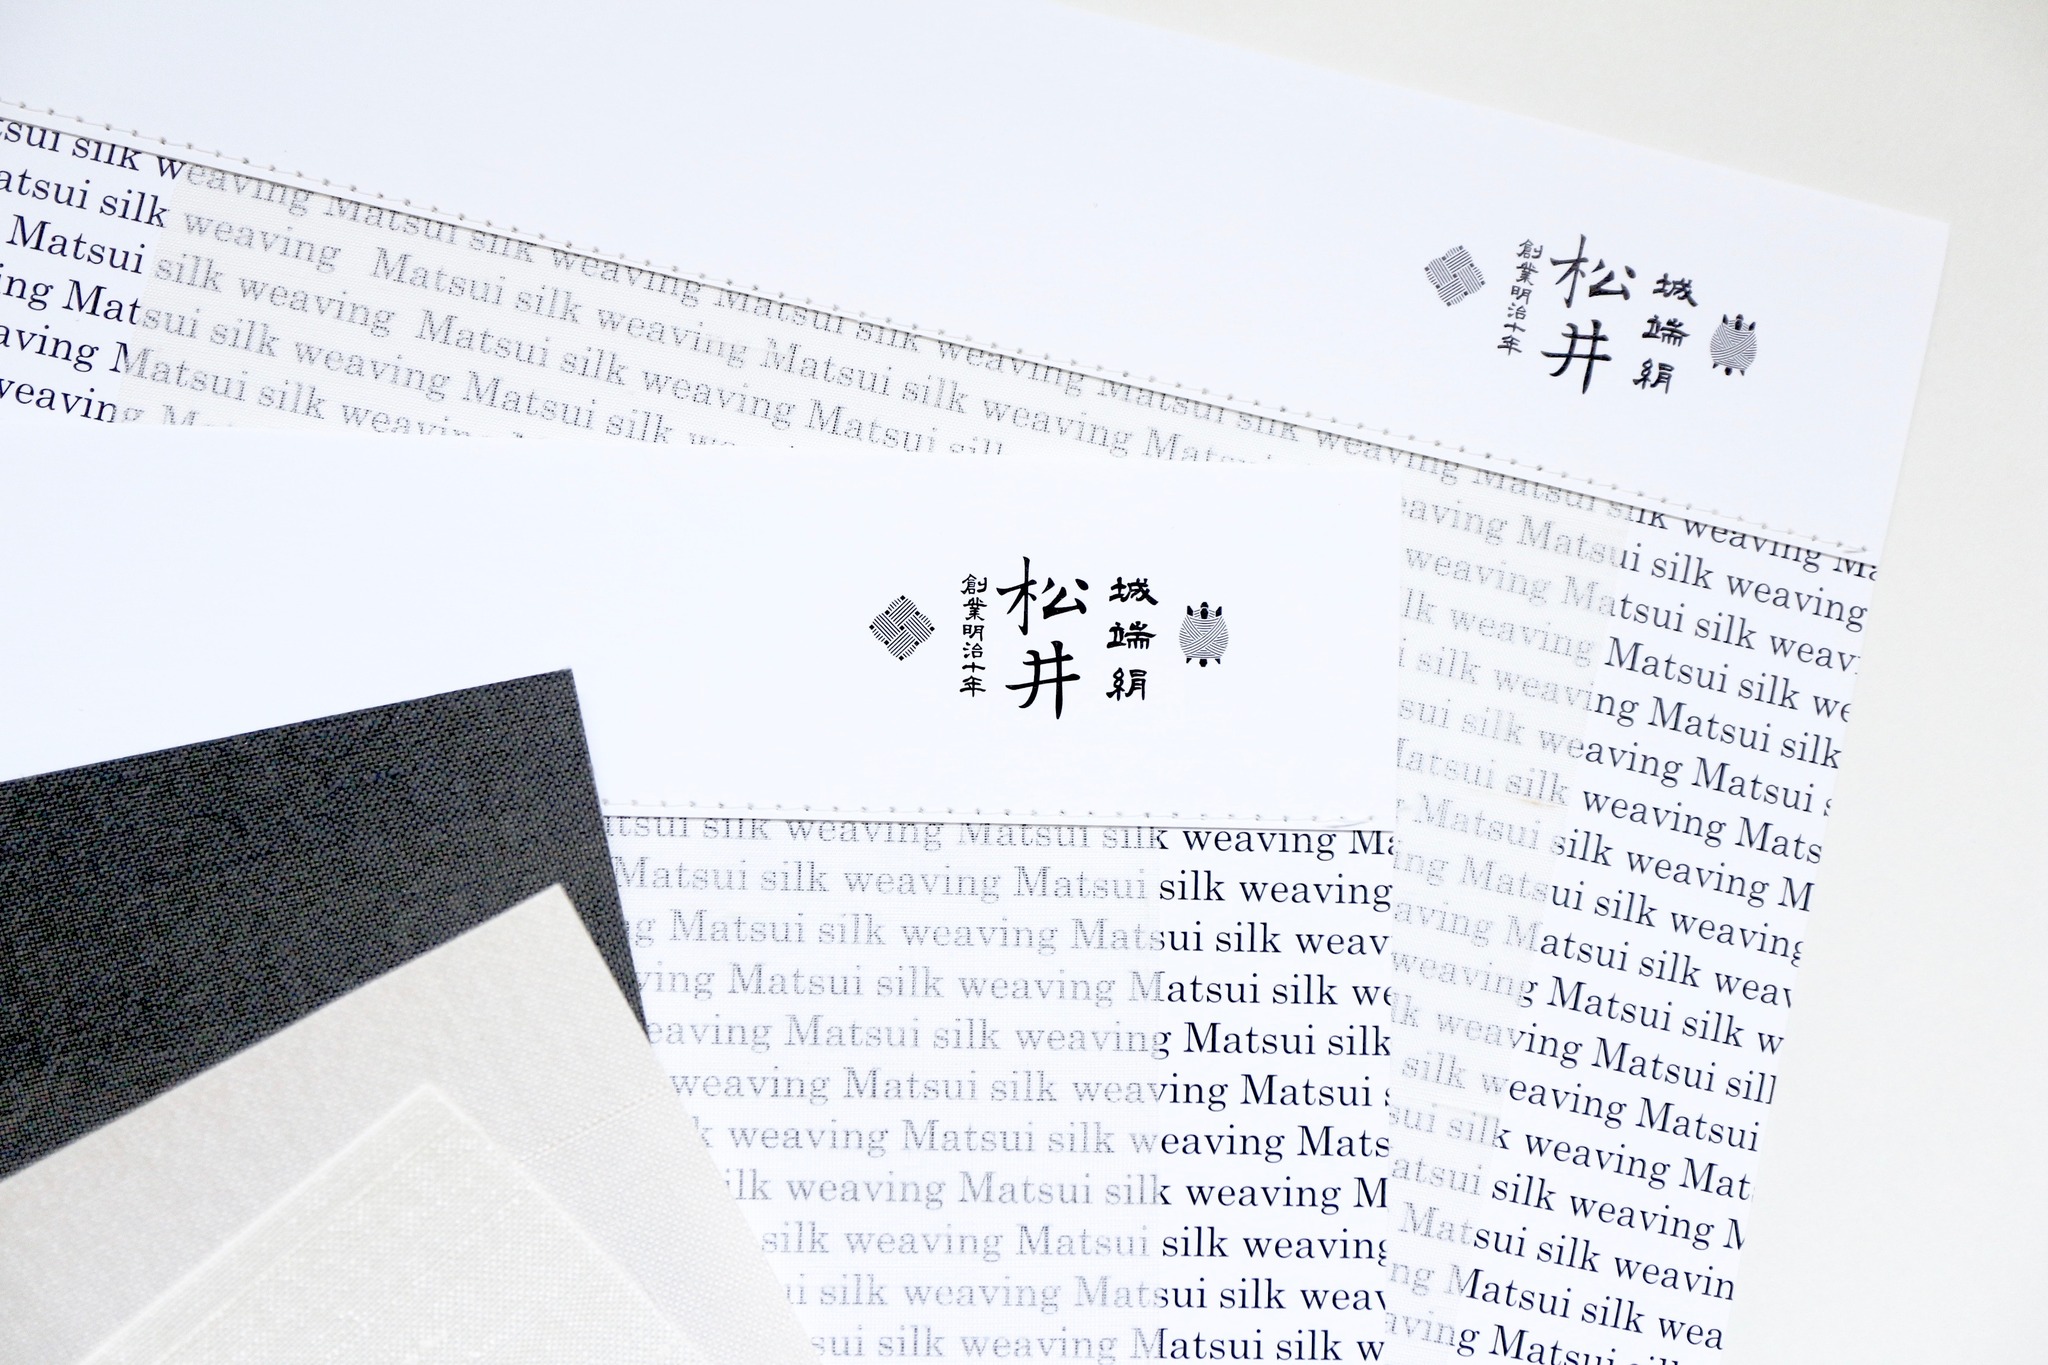 城端絹
松井
創業明治十年
silk weaving Matsui silk weaving Matsui silk weaving Matsui silk weaving Matsui silk weaving
atsui silk weaving Matsui silk weaving Matsui silk weaving Matsui
Matsui silk weaving Matsui silk weaving Matsui silk weaving
ing Matsui silk weaving Matsui silk weaving
aving Matsui silk weaving Matsui silk
weaving
weaving Matsui silk weaving
weaving Matsui silk weaving
silk weaving Matsui silk weav
silk weaving Matsui silk
sui silk weaving Matsui silk
Matsui silk weaving Mats
Matsui silk weaving M
ing Matsui silk weaving
aving Matsui silk weav
weaving Matsui silk w
lk weaving Matsui silk
silk weaving Matsui
sui silk weaving Mat
atsui silk weaving
Matsui silk weavin
ng Matsui silk wea
aving Matsui
城端絹
松井
創業明治十年
tsui silk weaving Matsui silk weaving Ma
Matsui silk weaving Matsui silk weaving
g Matsui silk weaving Matsui silk weav
ving Matsui silk weaving Matsui silk we
eaving Matsui silk weaving Matsui silk
weaving Matsui silk weaving Matsui
k weaving Matsui silk weaving Mats
ilk weaving Matsui silk weaving M
silk weaving Matsui silk weaving
i silk weaving Matsui silk weav
sui silk weaving Matsui silk w